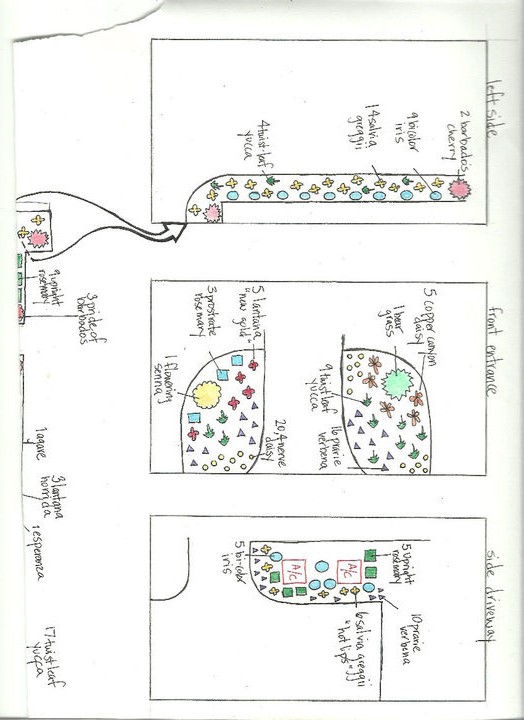 left side
2 barbados
cherry
9 bicolor
iris
14 salvia
greggii
4 twist-leaf
yucca
front entrance
5 copper canyon
daisy
1 bear
grass
9 twist leaf
yucca
16 prairie
verbena
5 lantana
"new gold"
3 prostrate
rosemary
1 flowering
senna
20, 4 nerve
daisy
side driveway
5 upright
rosemary
A/c
A/c
5 bicolor
iris
6 salvia greggii
"hot lips"
10 prairie
verbena
9 upright
rosemary
3 pride of
barbados
1 agave
3 lantana
horrida
1 esperanza
17 twist leaf
yucca